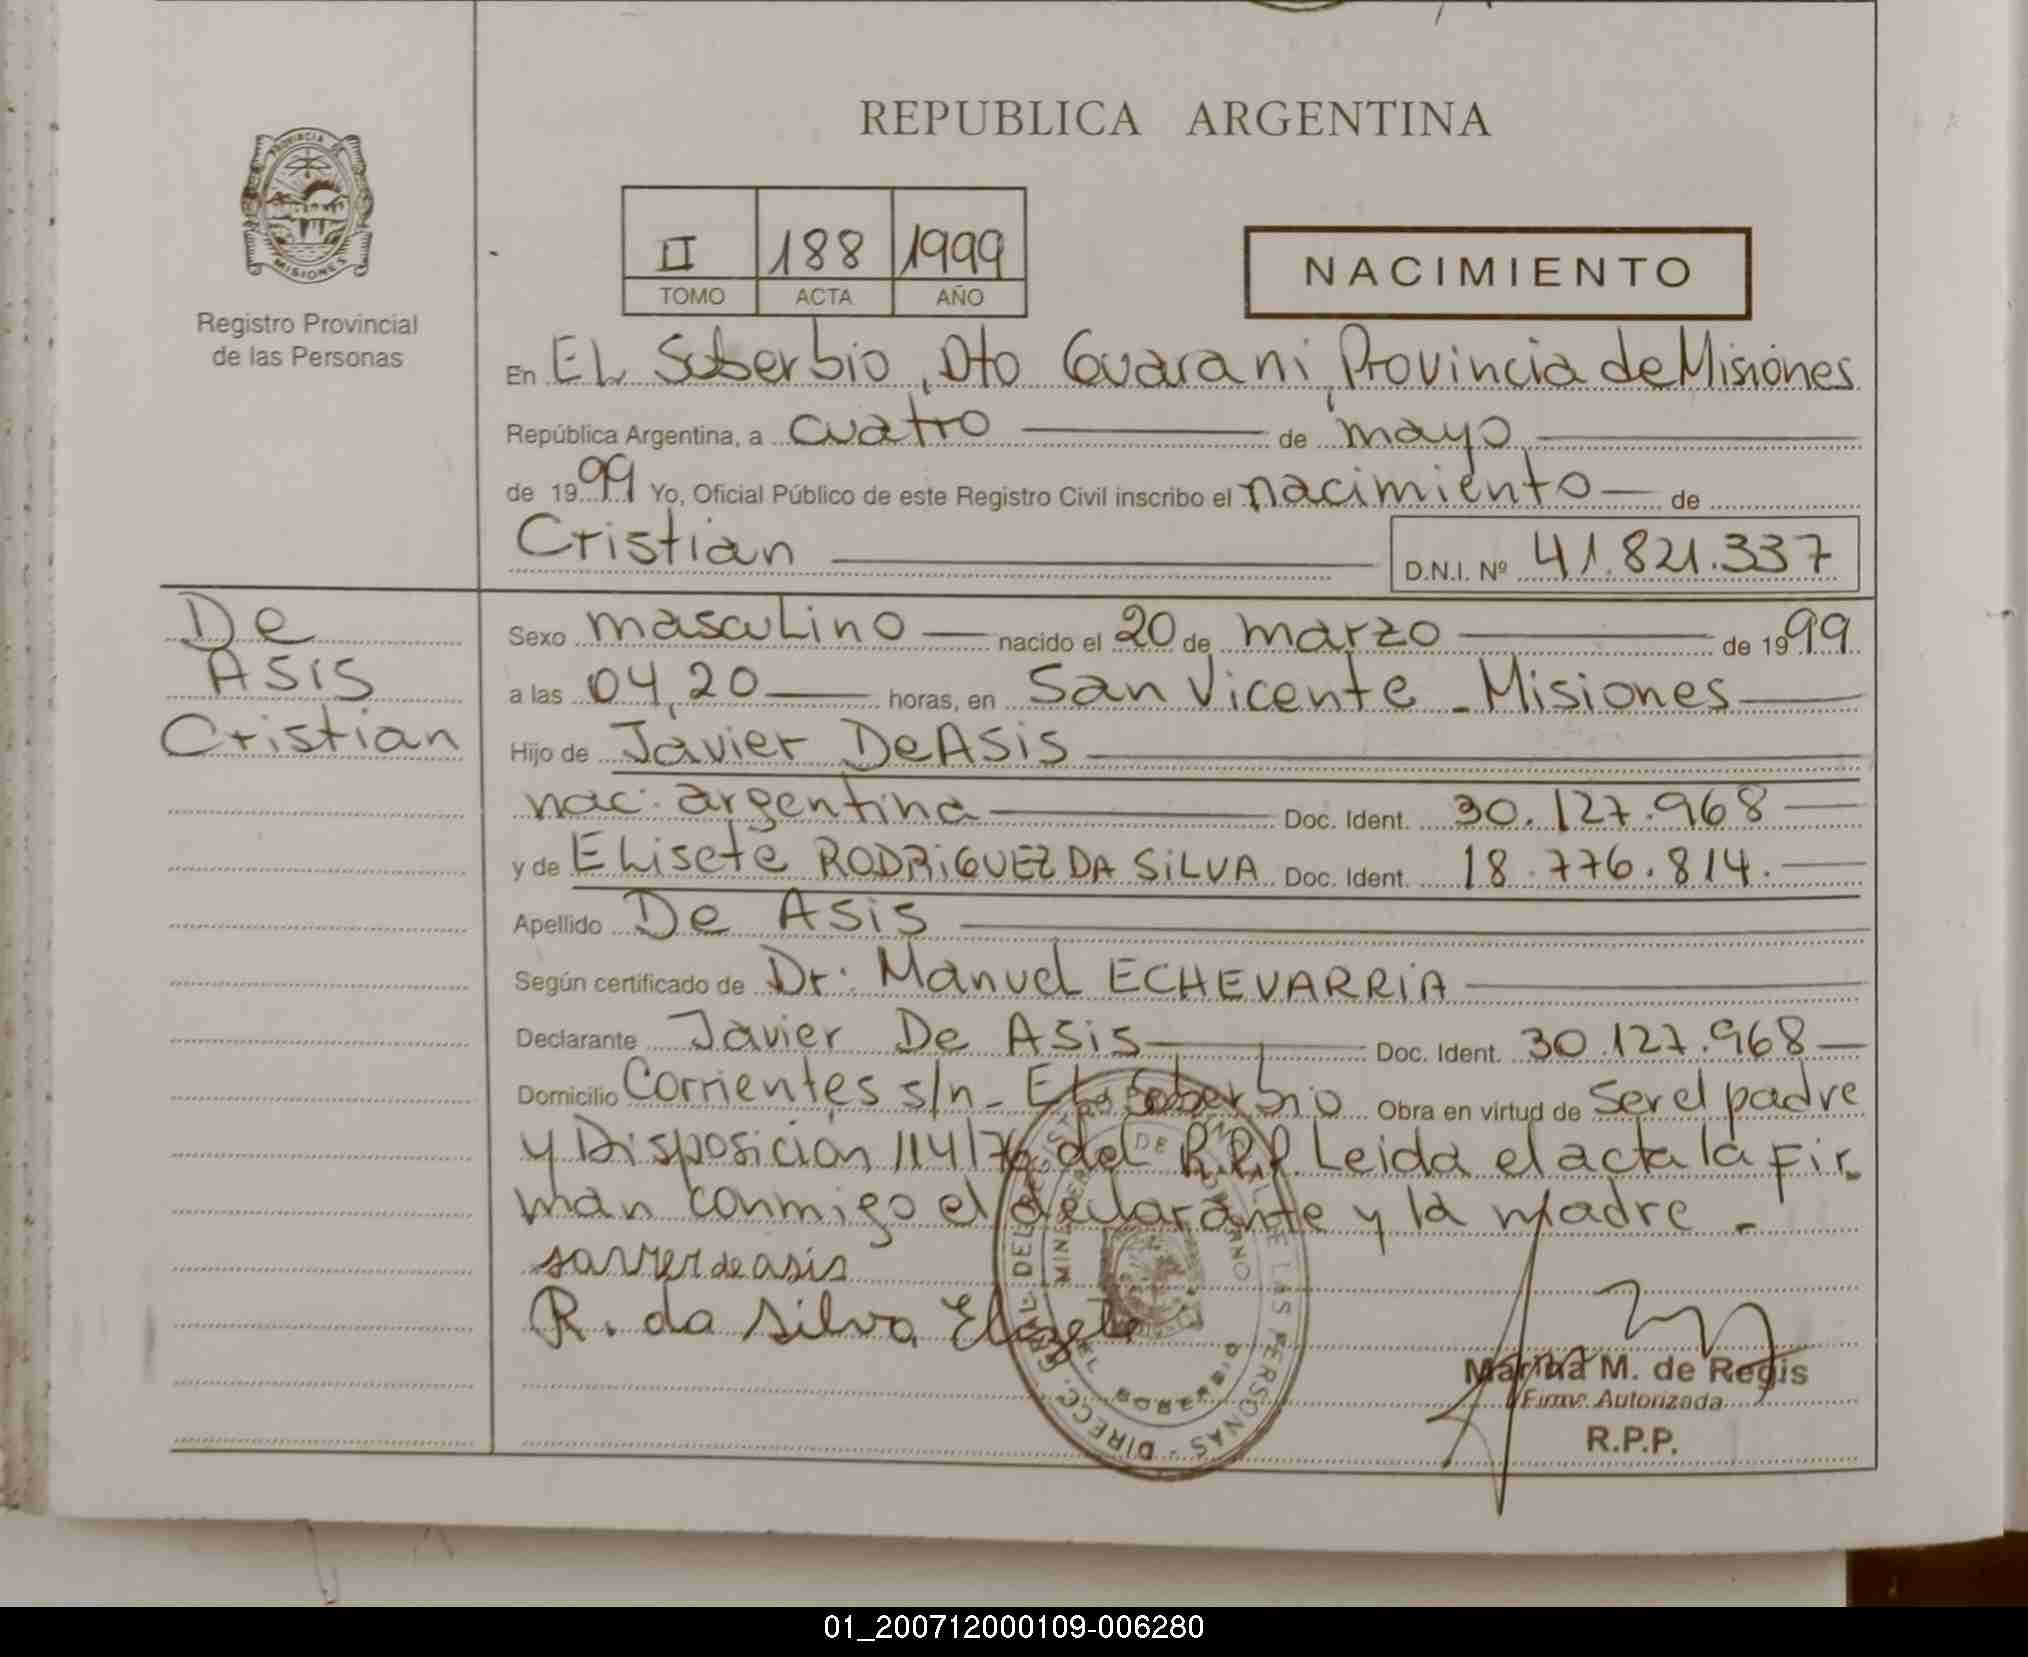 REPUBLICA ARGENTINA
PROVINCIA DE
MISIONES
Registro Provincial
de las Personas
II 188 1999
TOMO ACTA AÑO
NACIMIENTO
En EL Soberbio, Dto Guarani, Provincia de Misiones
República Argentina, a cuatro de mayo
de 1999 Yo, Oficial Público de este Registro Civil inscribo el nacimiento de
Cristian D.N.I. Nº 41.821.337
De
Asis
Cristian
Sexo masculino nacido el 20 de marzo de 1999
a las 04,20 horas, en San Vicente - Misiones
Hijo de Javier De Asis
nac. argentina Doc. Ident. 30.127.968
y de Elisete RODRiGUEZ DA SiLVA Doc. Ident. 18.776.814.
Apellido De Asis
Según certificado de Dr: Manuel ECHEVARRiA
Declarante Javier De Asis Doc. Ident. 30.127.968
Domicilio Corrientes s/n - El Soberbio Obra en virtud de ser el padre
y Disposición 114/76 del R.P.P. Leida el acta la fir-
man conmigo el declarante y la madre -
javier de asis
R. da Silva Elizete
DIRECC. GRAL. DEL REGISTRO PROVINCIAL DE LAS PERSONAS
MINISTERIO DE GOBIERNO
EL SOBERBIO
Marina M. de Regis
Firma Autorizada
R.P.P.
01_200712000109-006280